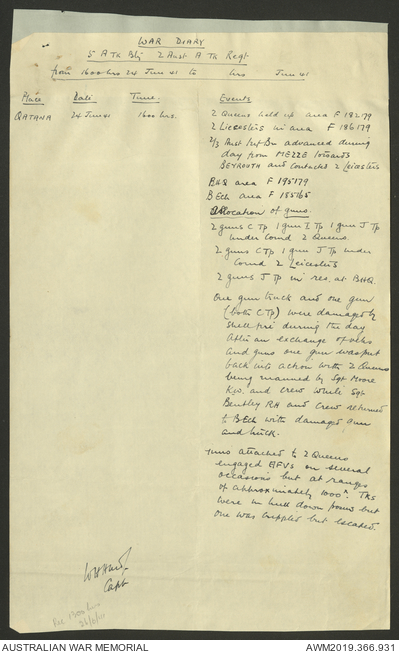 WAR DIARY
5 A Tk Bty 2 Aust A Tk Regt
from 1600 hrs 24 Jun 41 to hrs Jun 41
Place Date Time Events
QATANA 24 Jun 41 1600 hrs. 2 Queens held up area F 182179
2 Leicesters in area F 186179
2/3 Aust Inf Bn advanced during
day from MEZZE towards
BEYROUTH and contacted 2 Leicesters
BHQ area F 195179
B Ech area F 185165
Allocation of guns.
2 guns C Tp 1 gun I Tp 1 gun J Tp
under Comd 2 Queens.
2 guns C Tp 1 gun J Tp under
Comd 2 Leicesters
2 guns J Tp in res. at BHQ.
One gun truck and one gun
(both C Tp) were damaged by
shell fire during the day
After an exchange of vehs
and guns one gun was put
back into action with 2 Queens
being manned by Sgt Moore
and crew while Sgt
Bentley RH and crew returned
to B Ech with damaged gun
and truck.
Guns attached to 2 Queens
engaged EFVs on several
occasions but at ranges
of approximately 1000x. Tks
were in hull down posns but
one was crippled but escaped.
Capt
AUSTRALIAN WAR MEMORIAL
AWM2019.366.931